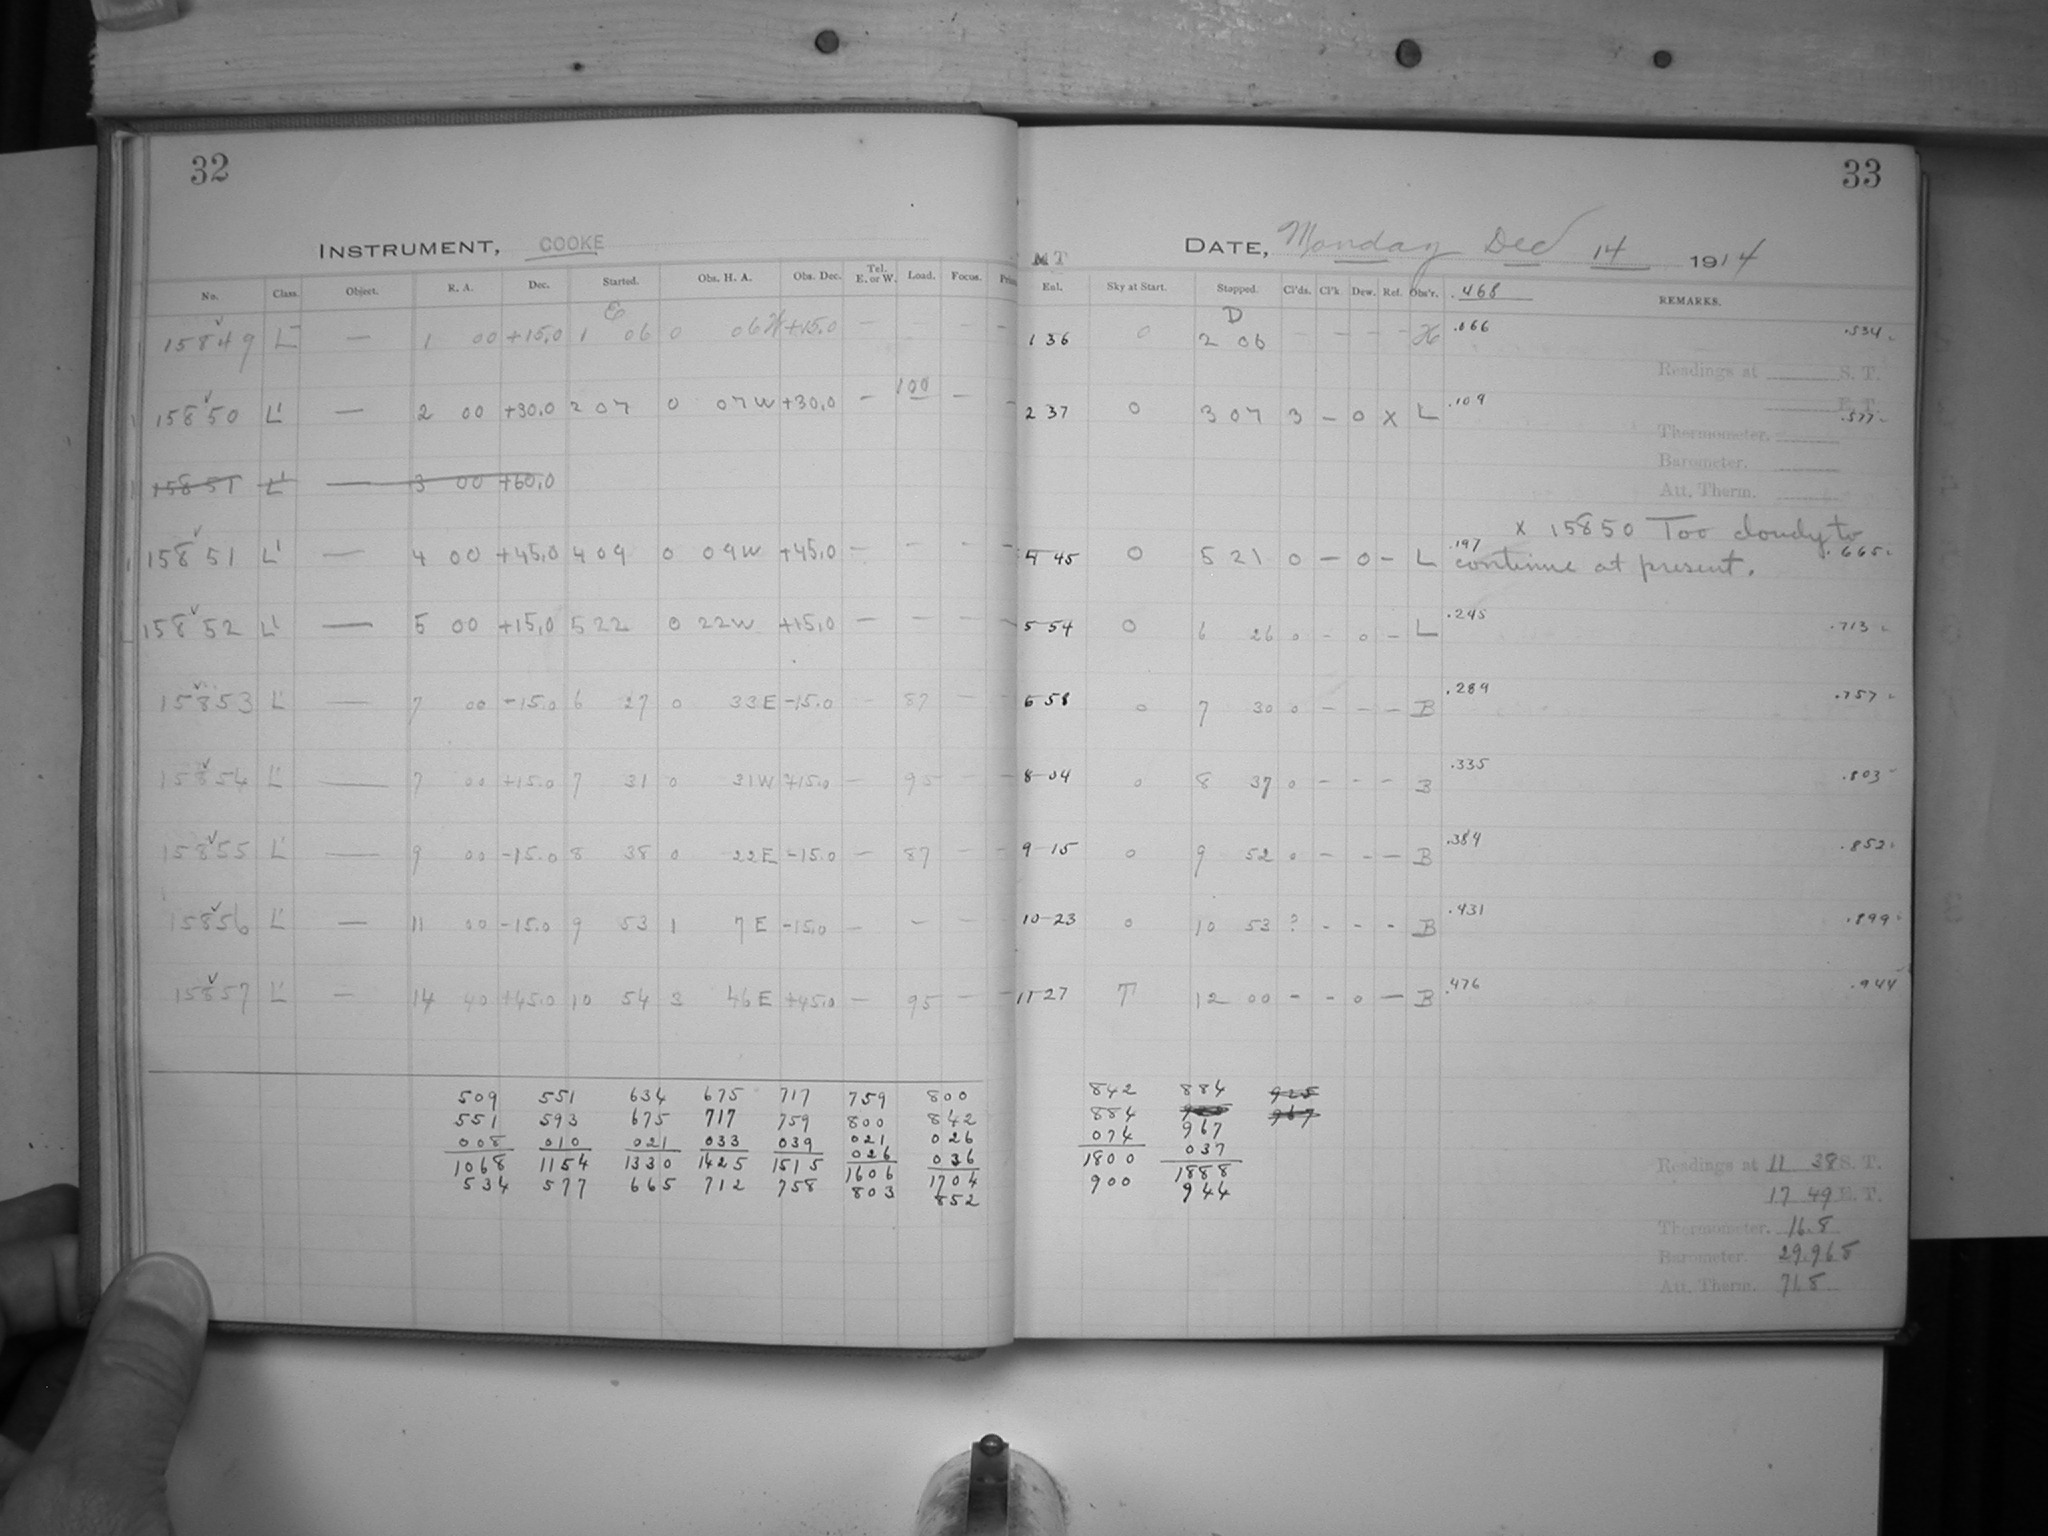 32
33
INSTRUMENT, COOKE
DATE, Monday Dec 14 1914
No. Class. Object. R. A. Dec. Started. Obs. H. A. Obs. Dec. Tel. E. or W. Load. Focus.
MT
Enl. Sky at Start. Stopped. Cl'ds. Cl'k Dew. Ref. Obs'r. .468 REMARKS.
E
D
15849 L — 1 00 +15.0 1 06 0 06 W +15.0 — — — 1 36 0 2 06 — — — — H .066 .534
Readings at S. T.
E. T.
15850 L' — 2 00 +30.0 2 07 0 07 W +30.0 — 100 — 2 37 0 3 07 3 — 0 X L .109 .577
Thermometer.
Barometer.
15851 L' — 3 00 +60.0
Att. Therm.
X 15850 Too cloudy to
continue at present.
15851 L' — 4 00 +45.0 4 09 0 09 W +45.0 — — — 4 45 0 5 21 0 — 0 — L .197 .665
15852 L' — 5 00 +15.0 5 22 0 22 W +15.0 — — — 5 54 0 6 26 0 - 0 - L .245 .713
15853 L' — 7 00 -15.0 6 27 0 33 E -15.0 — 87 — 6 58 0 7 30 0 - - - B .289 .757
15854 L' — 7 00 +15.0 7 31 0 31 W +15.0 — 95 — 8 04 0 8 37 0 - - - B .335 .803
15855 L' — 9 00 -15.0 8 38 0 22 E -15.0 — 87 — 9 15 0 9 52 0 - - — B .384 .852
15856 L' — 11 00 -15.0 9 53 1 7 E -15.0 — — — 10 23 0 10 53 ? - - - B .431 .899
15857 L' — 14 40 +45.0 10 54 3 46 E +45.0 — 95 — 11 27 T 12 00 - - 0 — B .476 .944
509 551 634 675 717 759 800 842 884 925
551 593 675 717 759 800 842 884 967 967
008 010 021 033 039 021 026 074 037
026 036
1068 1154 1330 1425 1515 1606 1704 1800 1888
534 577 665 712 758 803 852 900 944
Readings at 11 38 S. T.
17 49 E. T.
Thermometer. 16.8
Barometer. 29.968
Att. Therm. 71.8